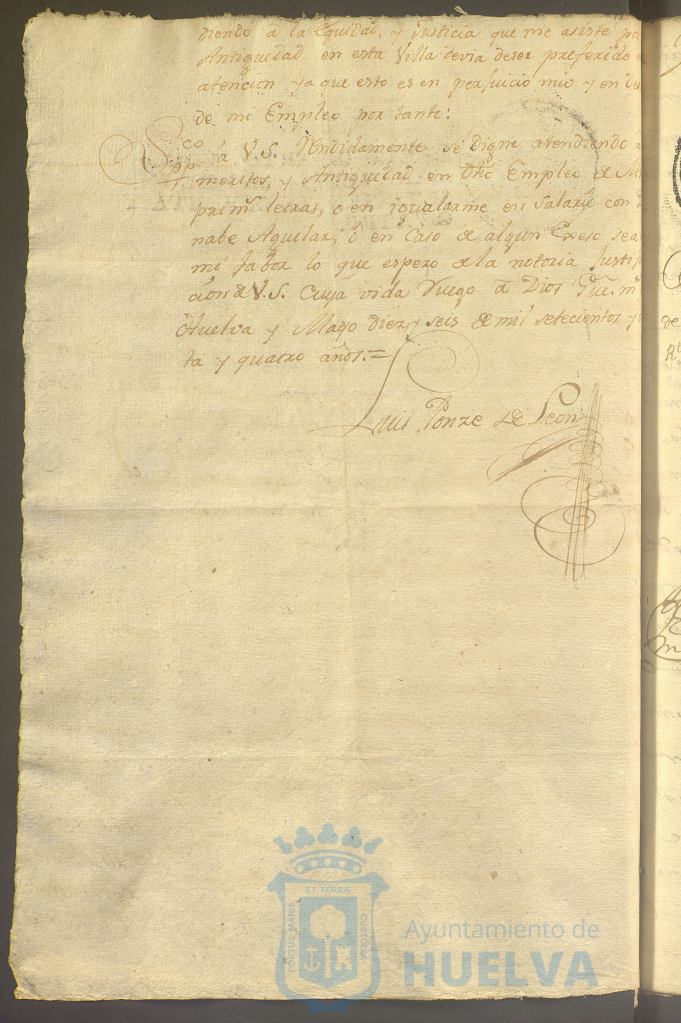 diendo â la Equidad, y Justicia que me asiste por
Antiguedad en esta Villa devia de ser preferido
atencion ya que esto es en perjuicio mio y en
de mi Empleo por tanto:
Suppco â V.S. Rendidamente se digne atendiendo â
meritos, y Antiguedad en dho Empleo de
primas letras, o en igualarme en Salario con
nabe Aguilar, ô en caso de algun Exeso sea
mi fabor lo que espero de la notoria Justi
cion de V.S. Cuya vida Ruego â Dios Gue. ms
Huelva y Mayo diez y seis de mil setecientos
ta y quatro años.=
Luis Ponze de Leon
PORTUS MARIS ET TERRÆ CUSTODIA
Ayuntamiento de
HUELVA